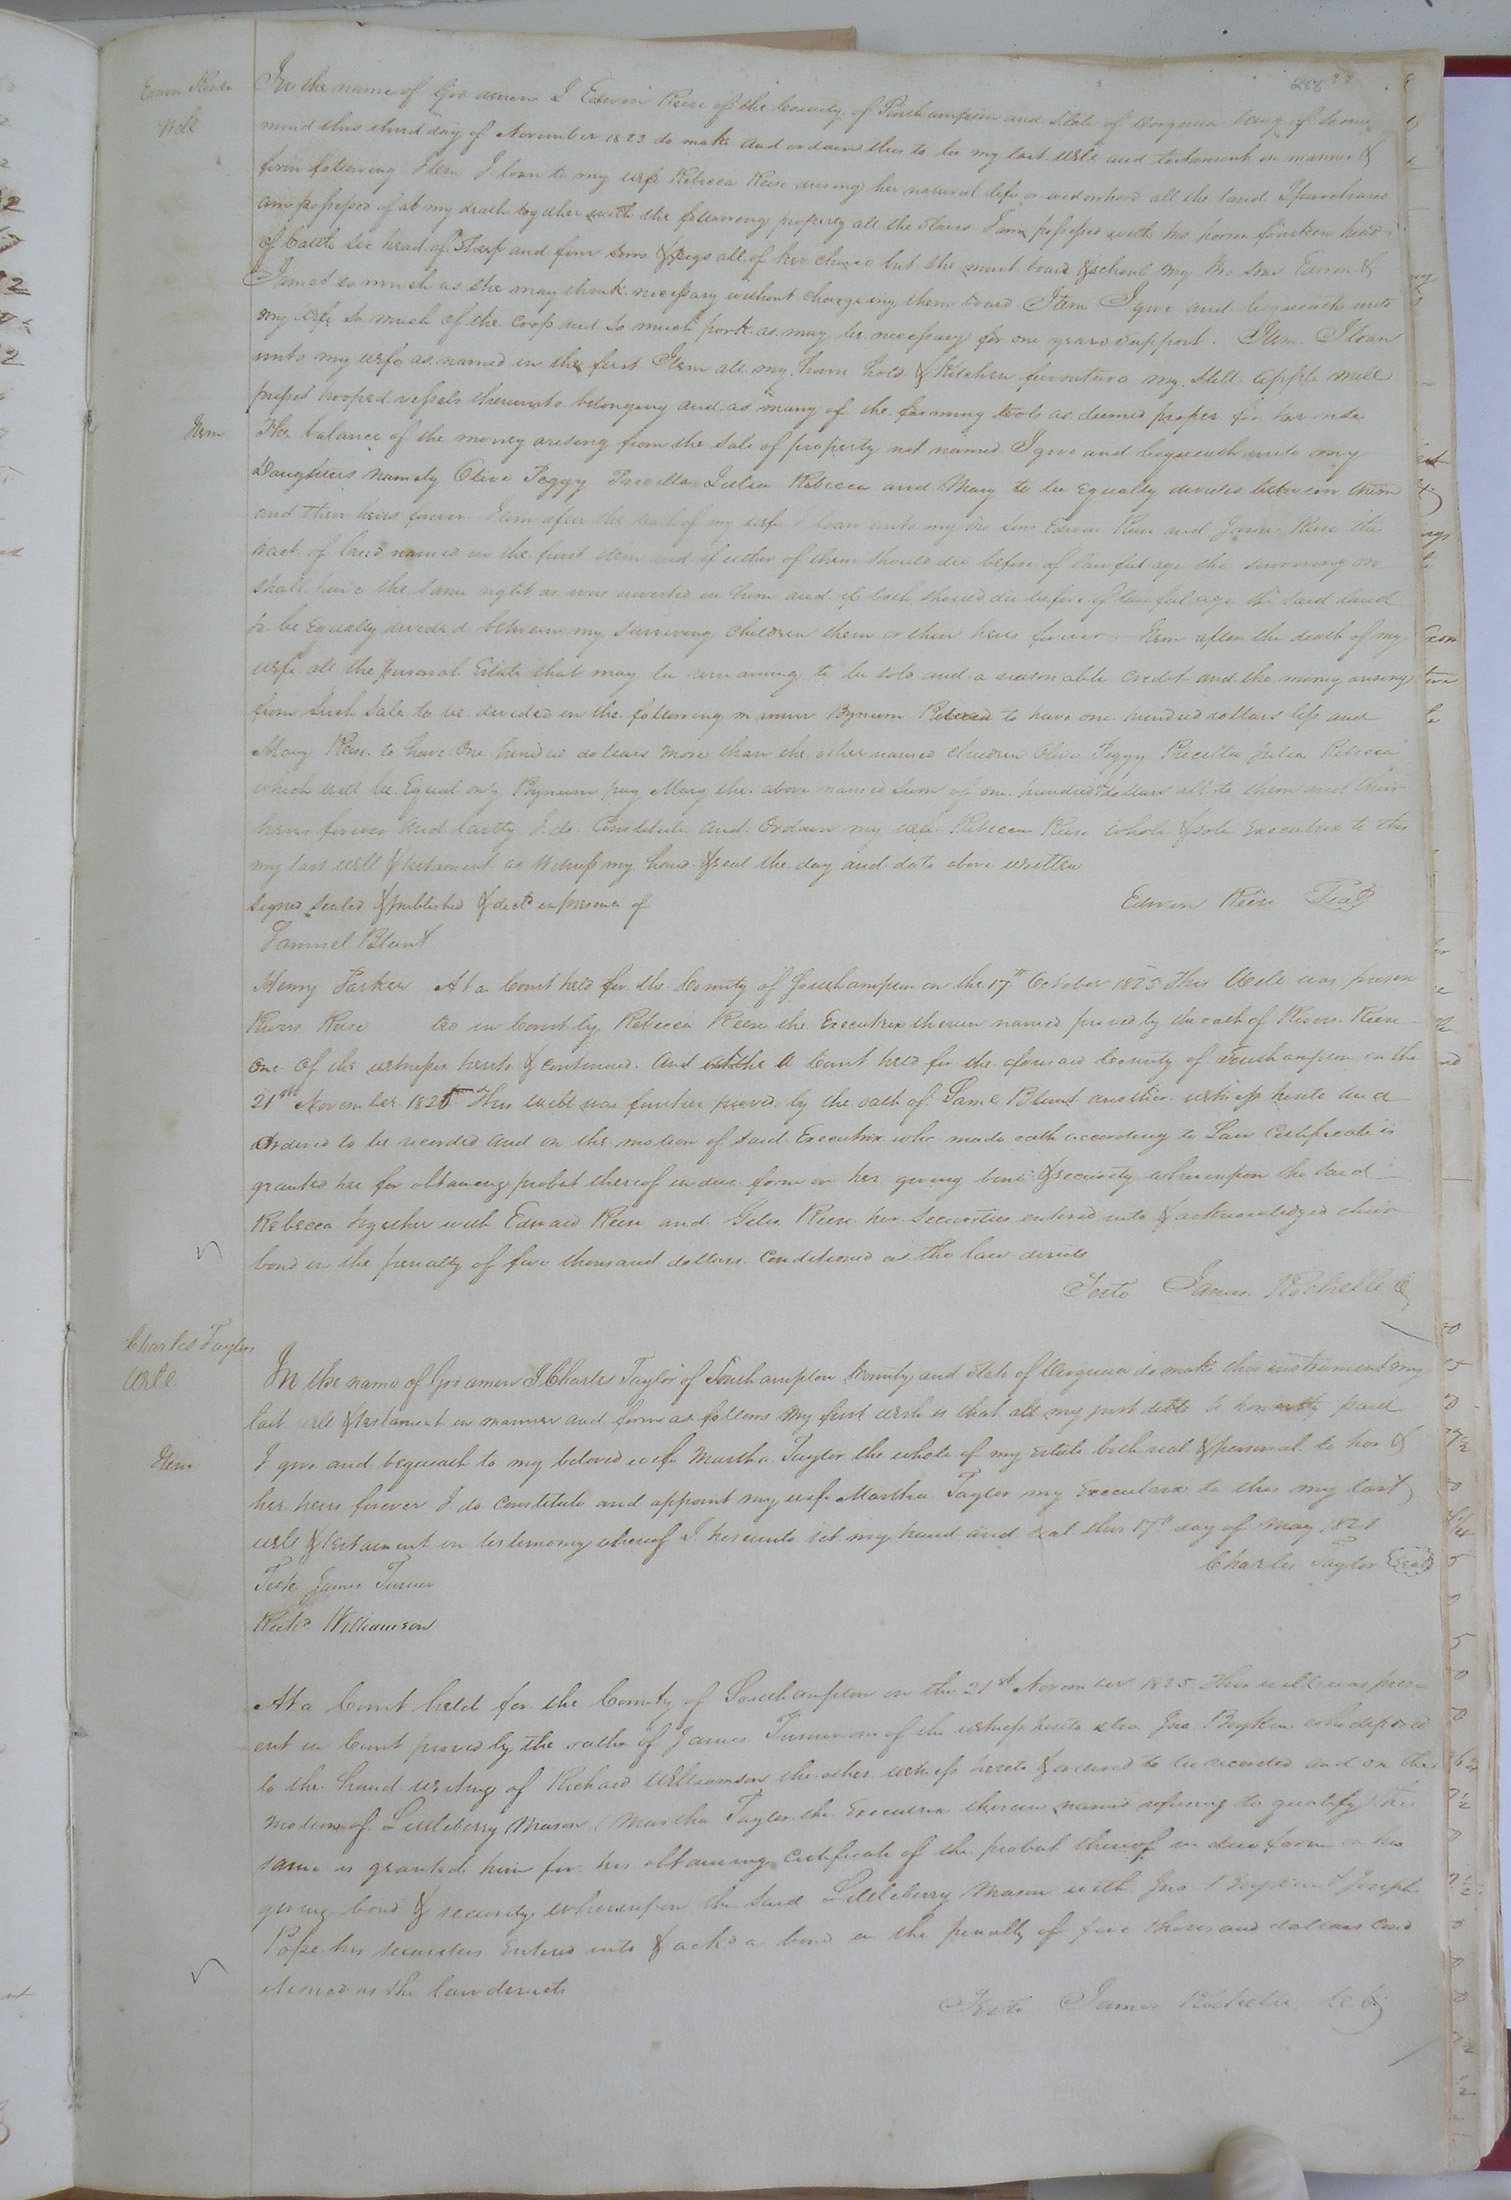 Edwin Reese
Will
In the name of God amen I Edwin Reese of the County of Southampton and State of Virginia being of sound
mind this third day of November 1823 do make and ordain this to be my last will and testament in manner &
form following Item I loan to my wife Rebecca Reese during her natural life or widowhood all the land I purchased
am possessed of at my death together with the following property all the slaves I am possessed with two horses fourteen head
of Cattle six head of Sheep and four sows & pigs all of her choice but she must board & school my two sons Edwin &
James so much as she may think necessary without chargeing them board Item I give and bequeath unto
my wife so much of the crop and so much pork as may be necessary for one years support. Item I loan
unto my wife as named in the first Item all my house hold & Kitchen furniture my Still apple mill
presses hooped vessels thereunto belonging and as many of the farming tools as deemed proper for her use
Item
The balance of the money arising from the sale of property not named I give and bequeath unto my
Daughters namely Olive Peggy Pricilla Julia Rebecca and Mary to be Equally divided between them
and their heirs forever Item after the death of my wife I loan unto my two sons Edwin Reese and James Reese the
tract of land named in the first item and if either of them should die before of lawful age the surviving one
shall have the same right as was invested in him and if both should die before of lawful age the said land
to be Equally divided between my surviving children them or their heirs forever. Item after the death of my
wife all the personal Estate that may be remaining to be sold and a reasonable credit and the money arising
from such sale to be divided in the following manner Bynum to have one hundred dollars less and
Mary Reese to have One hundred dollars more than the other named children Olive Peggy Pricilla Julia Rebecca
which will be Equal only Bynum pay Mary the above named sum of one hundred dollars all to them and their
heirs forever And lastly I do Constitute and Ordain my wife Rebecca Reese whole & sole Executrix to this
my last will & testament as witness my hand & seal the day and date above written
Signed sealed & published & decld in presence of
Edwin Reese Seal
Samuel Blunt
Henry Parker At a Court held for the County of Southampton on the 17th October 1825 This Will was presen
Rivers Reese ted in Court by Rebecca Reese the Executrix therein named proved by the oath of Rivers Reese
One of the witnesses hereto & continued. And at the A Court held for the aforesaid County of Southampton on the
21st November 1825 This will was further proved by the oath of Saml Blunt another witness hereto and
Ordered to be recorded and on the motion of said Executrix who made oath according to Law Certificate is
granted her for obtaining probat thereof in due form on her giving bond & security whereupon the said
Rebecca together with Edward Reese and Giles Reese her Securities entered into & acknowledged their
bond in the penalty of five thousand dollars Conditioned as the law directs
Teste James Rochelle C
Charles Taylors
Will
In the name of God amen I Charles Taylor of Southampton County and State of Virginia do make this instrument my
last will & testament in manner and form as follows My first wish is that all my just debts be honestly paid
Item
I give and bequeath to my beloved wife Martha Taylor the whole of my Estate both real & personal to her &
her heirs forever I do constitute and appoint my wife Martha Taylor my Executrix to this my last
will & testament in testimony whereof I hereunto set my hand and seal this 17th day of May 1821
Charles Taylor Seal
Teste James Turner
Richd Williamson
At a Court held for the County of Southampton on the 21st November 1825 This will was pres
ent in Court proved by the oath of James Turner one of the witness hereto also Jno. Boykin who deposed
to the hand writing of Richard Williamson the other witness hereto & ordered to be recorded and on the
motion of Littleberry Mason (Martha Taylor the Executrix therein named refusing to qualify) the
same is granted him for his obtaining certificate of the probat thereof in due form on his
giving bond & security whereupon the said Littleberry Mason with Jno Boykin & Joseph
Pope his securities Entered into & ackd a bond in the penalty of five thousand dollars cond
itioned as the law directs
Teste James Rochelle C C